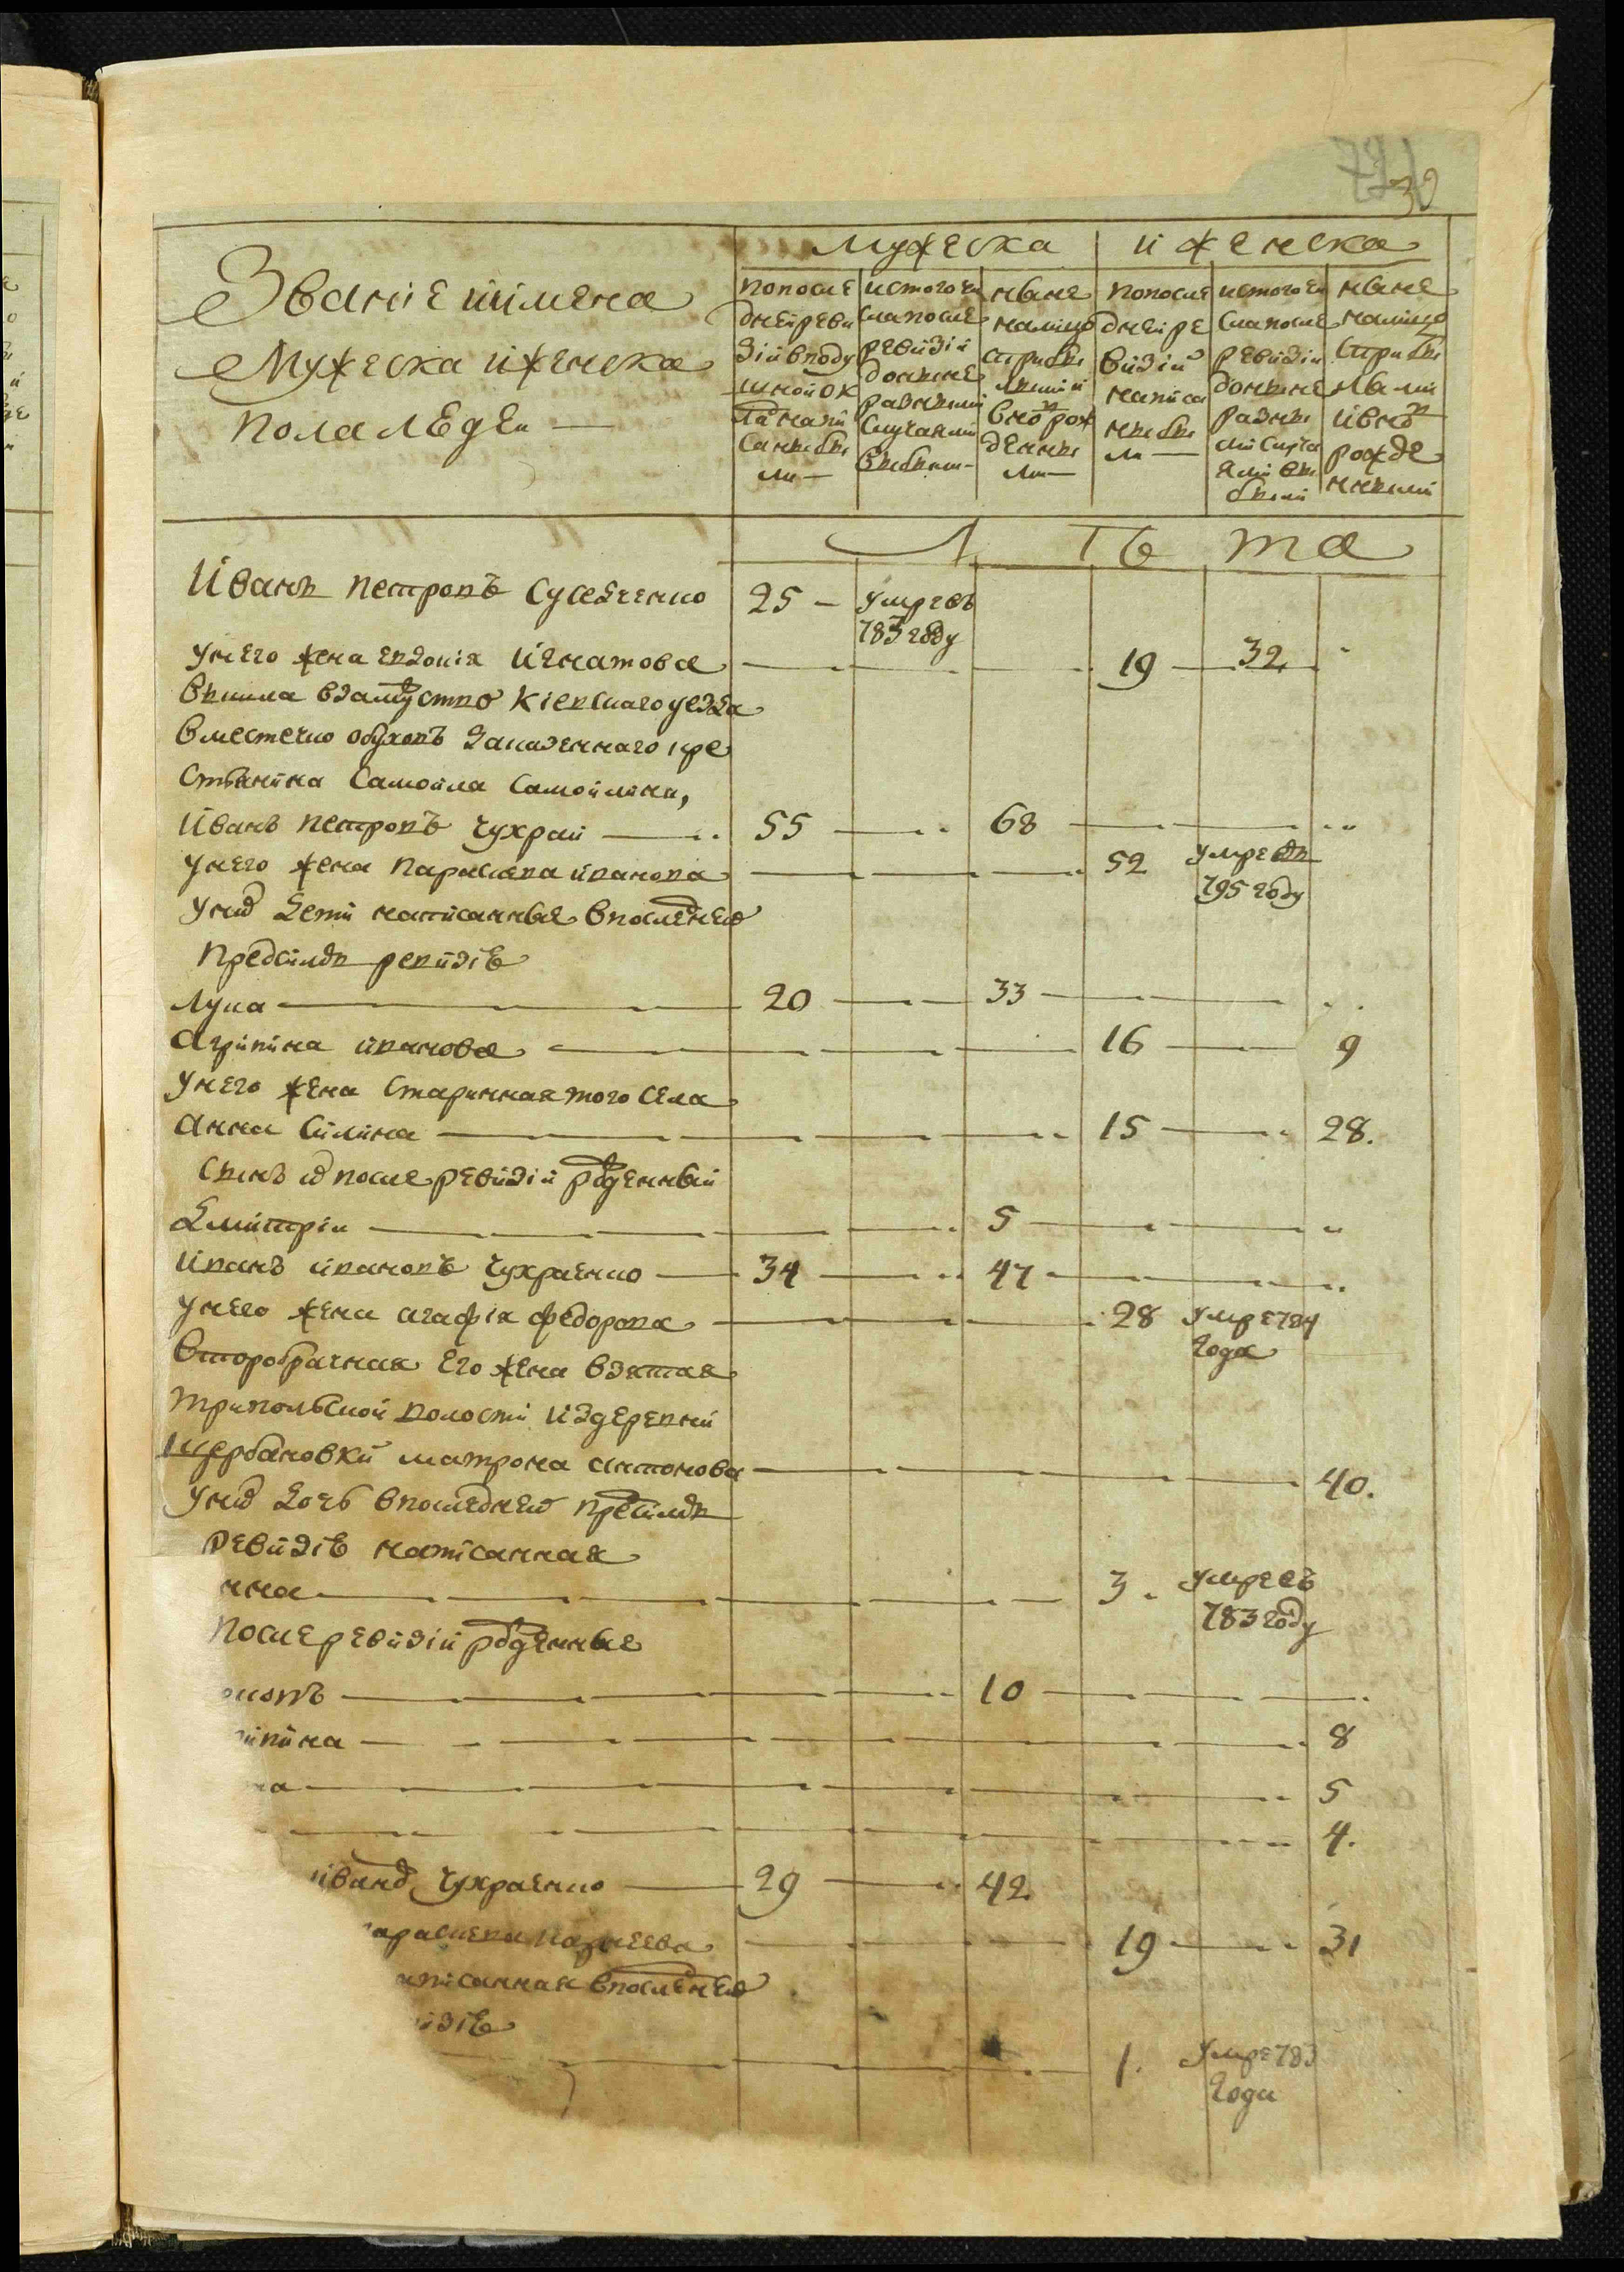 39
мужеска и женска
Званіе иімена
Мужеска иженска
пола лѣдеи —
попосле
днеиреви
зіивподу
шнои ок
ла напи
саны бы
ли —
истогочи
сла после
ревизіи
доныне
разными
случаями
выбыли —
ныне
налицо
сприбы
лыми и
вноврож
денны
ми —
попосле
днеире
визіи
написа
ны бы
ли —
истогочи
сла после
ревизіи
доныне
разны
ми случа
ями вы
были
ныне
налицо
сприбы
лыми
ивнов
рожде
нными
Лѣта
Иванъ петровъ Суседченко 25 — умревъ
783 году
унего жена евдокія Игнатова 19 — 32
вышла взамуство Кіевского уезда
вместечко обуховъ Заказенного кре
стьянина Самоила Самоиленка,
Иванъ петровъ чухраи 55 — 68
унего жена парасъкева иванова 52 умревъ
795 году
унихъ дети написанные впоследнеи
предсимъ ревизіе
лука 20 — 33
агрипина иванова 16 — 9
унего жена старинная того села
анна силина 15 — 28.
сынъ их после ревизіи рожденныи
дмитріи 5
иванъ ивановъ чухраенко 34 — 47
унего жена агафія федорова 28 умре 784
года
второбрачная его жена взятая
трипольскои волости издеревни
щербановки матрона антонова 40.
унихъ дочь впоследнеи пресимъ
ревизіе написанная
нна 3. умревъ
783 году
после ревизіи рожденные
окопъ 10
ипина 8
на 5
4.
иванов чухраенко 29 — 42
параскева 19 — 31
аписанная впоследнеи
изіе
1. умре 783
года